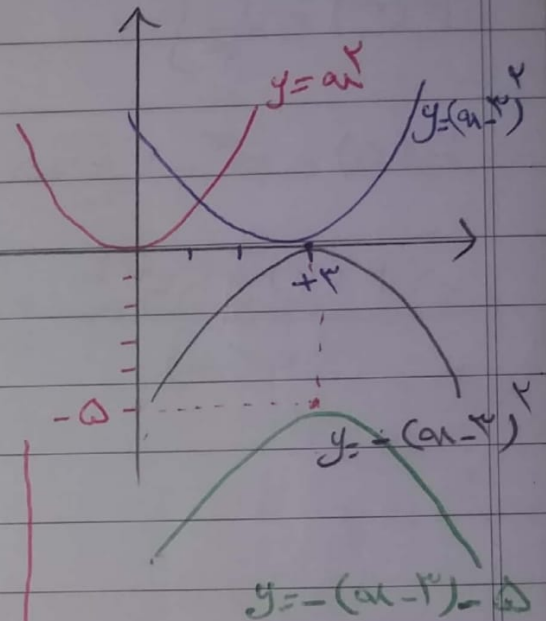 y=x^۲
y=(x-۳)^۲
+۳
-۵
y=-(x-۳)^۲
y=-(x-۳)-۵